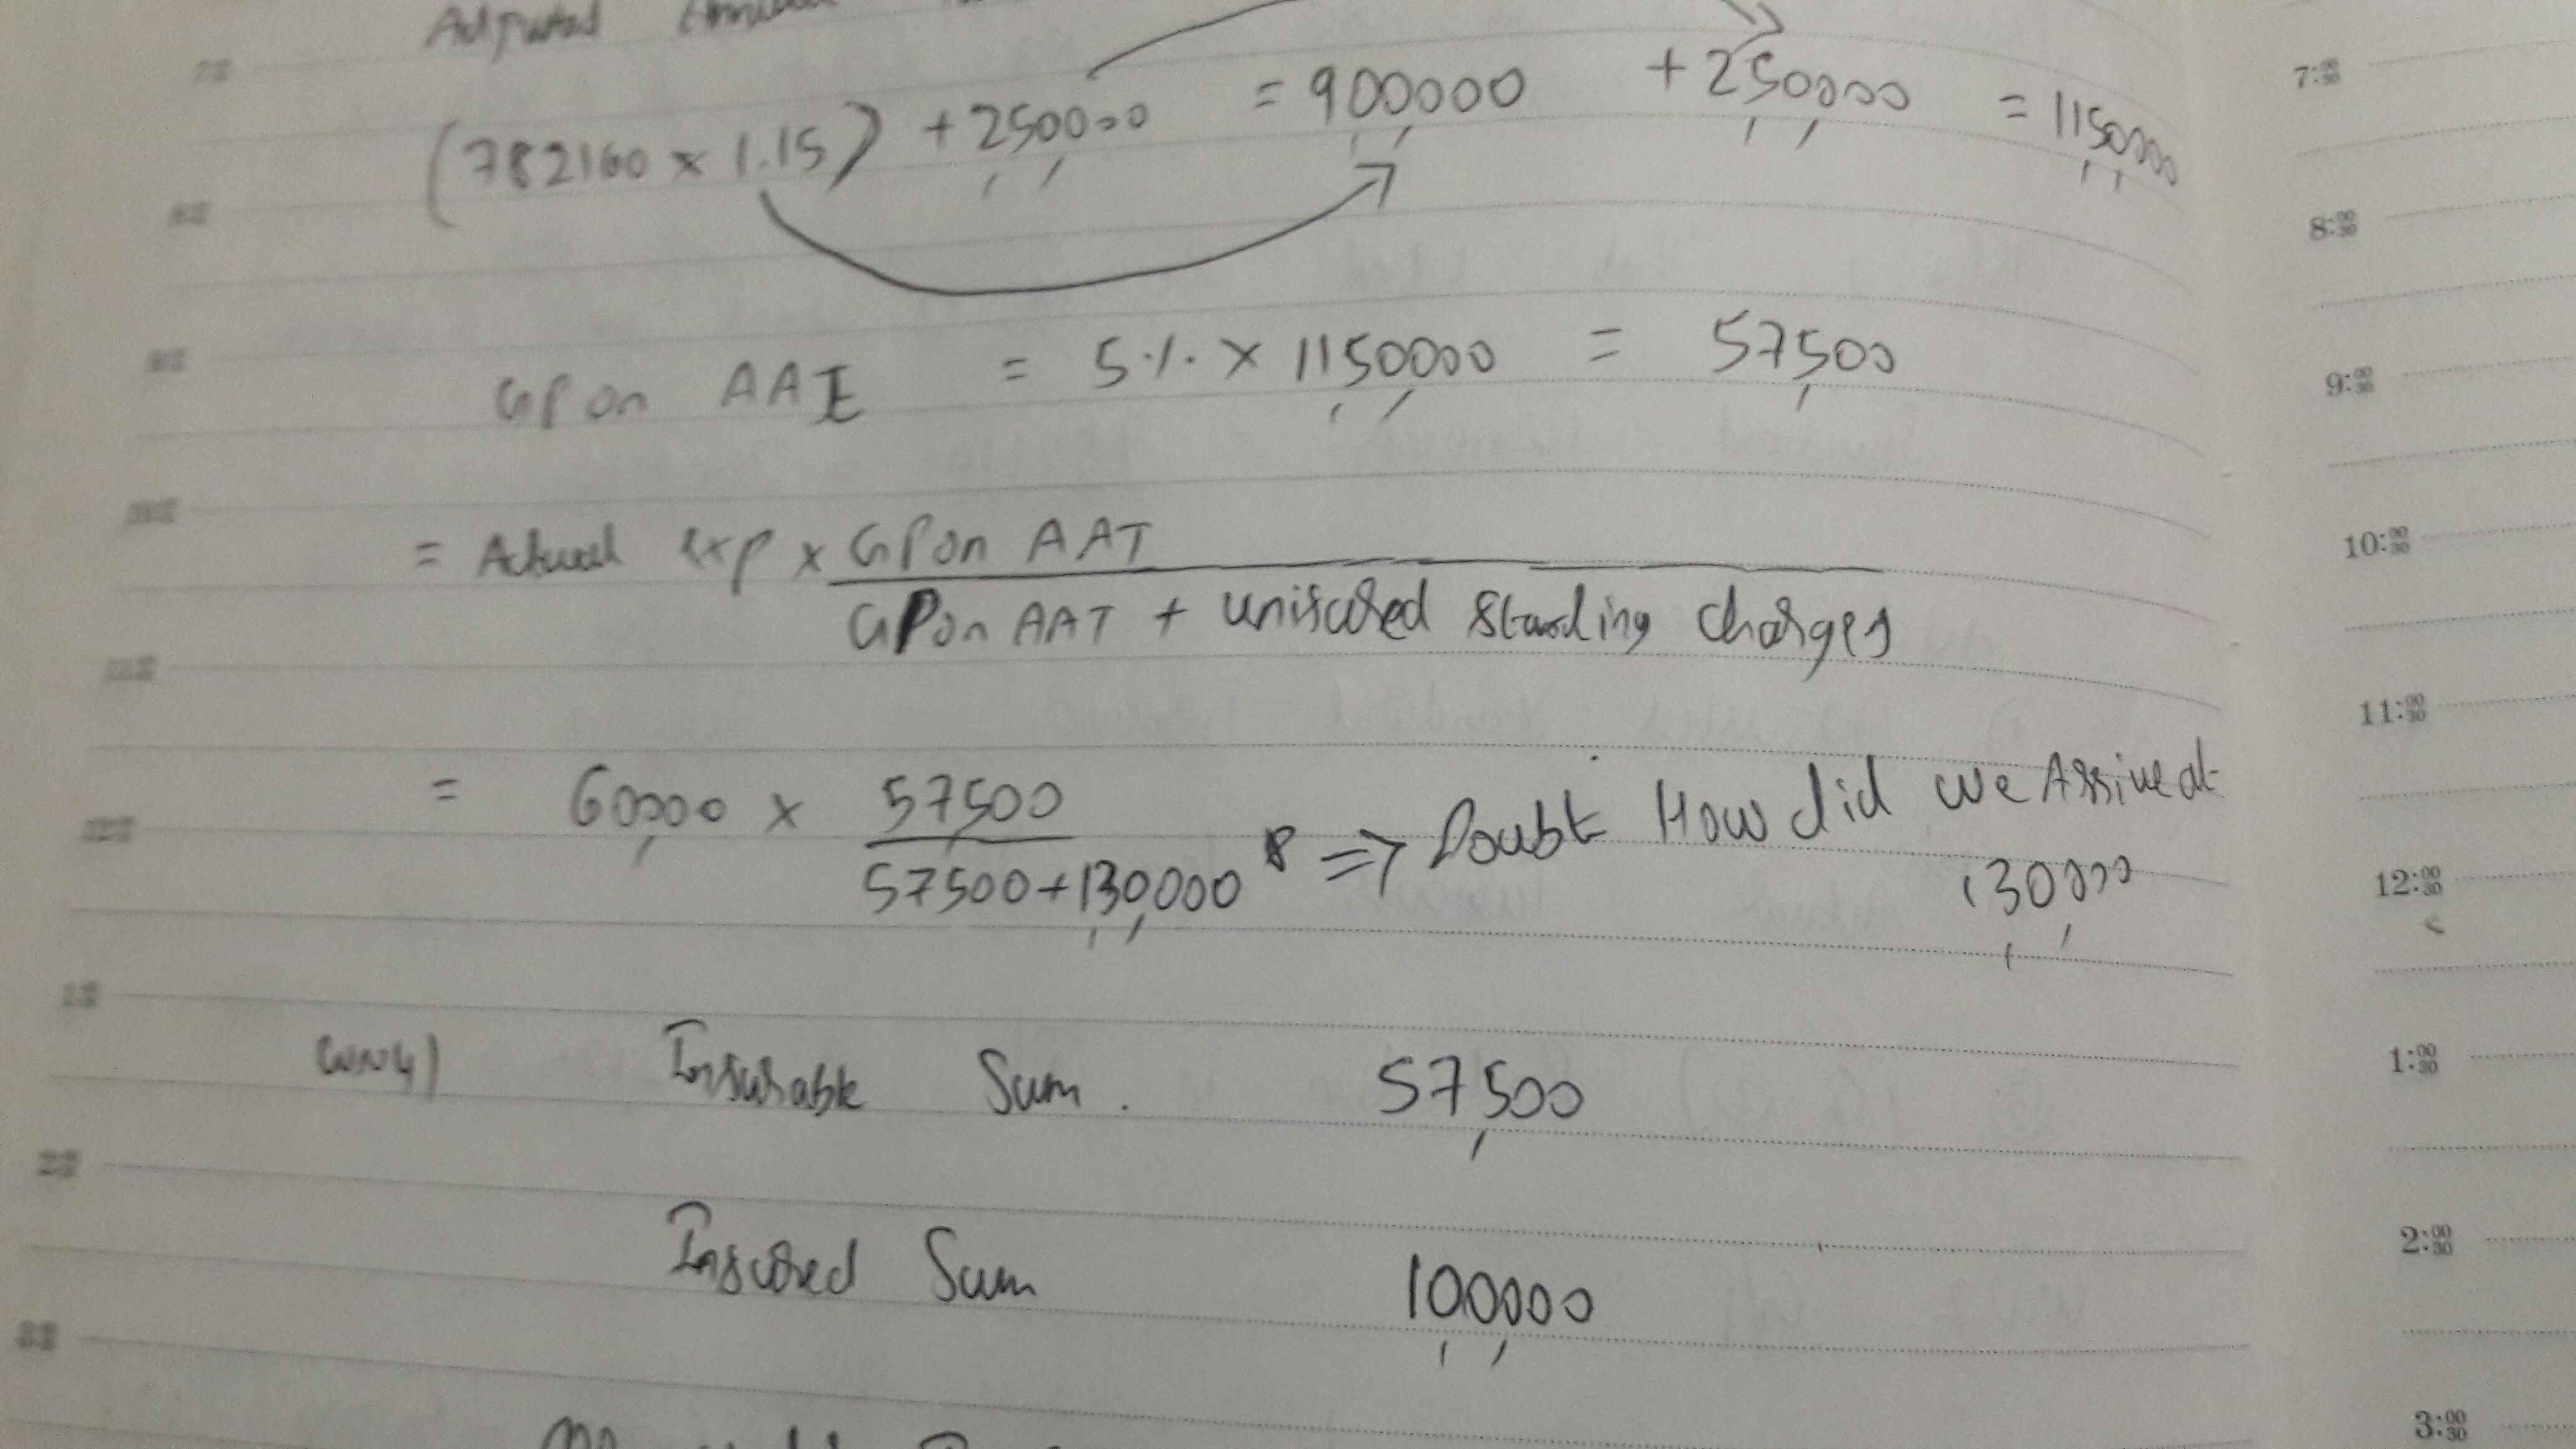 Adjusted
(782160 x 1.15) + 250000 = 900000 + 250000 = 1150000
GP on AAI = 5% x 1150000 = 57500
= Actual exp x GP on AAT
GP on AAT + uniscured standing charges
= 60000 x 57500
57500 + 130,000 * => Doubt How did we Arrive at
130000
WN4) Insurable Sum. 57500
Insured Sum 100000
7:00 30
8:00 30
9:00 30
10:00 30
11:00 30
12:00 30
1:00 30
2:00 30
3:00 30